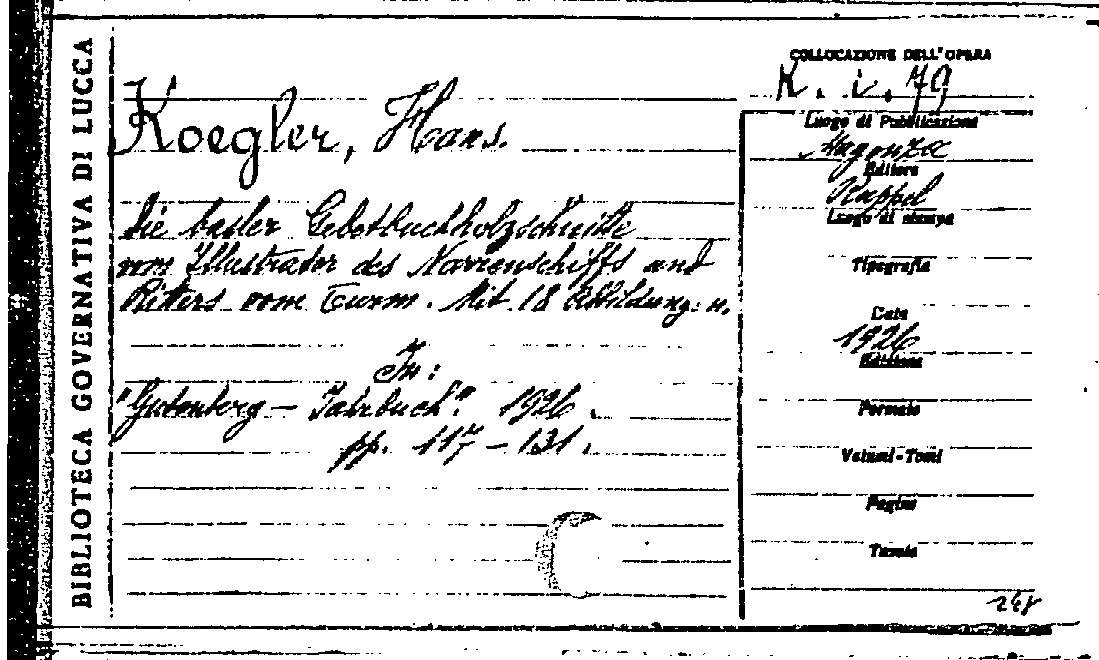 BIBLIOTECA GOVERNATIVA DI LUCCA
Koegler, Hans.
Die basler Gebetbuchholzschnitte
vom Illustrator des Narrenschiffs und
Ritters vom Turm. Mit 18 Abbildung: u.
In:
"Gutenberg - Jahrbuch". 1926.
pp. 117 - 131.
COLLOCAZIONE DELL'OPERA
K. i. 79
Luogo di Pubblicazione
Magonza
Editore
Ruppel
Luogo di stampa
Tipografia
Data
1926
Edizione
Formato
Volumi-Tomi
Pagine
Tavole